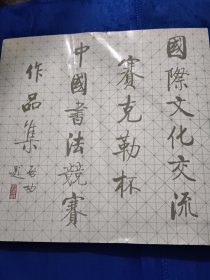 國際文化交流
賽克勒杯
中國書法競賽
作品集
啟功題